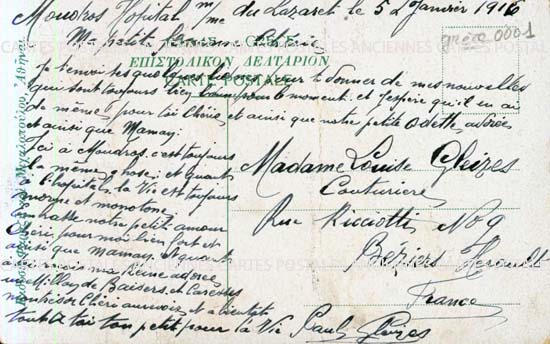 Moudros Hôpital du Lazaret le 5 Janvier 1916
Ma petite
grèce 0001
ΕΠΙΣΤΟΛΙΚΟΝ ΔΕΛΤΑΡΙΟΝ
CARTE POSTALE
CARTES POSTALES ANCIENNES CARTES POSTALES
je t'envoi ces quelques lignes pour te donner de mes nouvelles
qui sont toujours bien bonne pour le moment. et j'espère qu'il en ai
de même, pour toi Chérie et ainsi que notre petite Odette, adorée
et ainsi que Mamay.
ici à Moudros, c'est toujours
la même chose; et quant
à l'hôpital, la Vie est toujours
morne et monotone
embrasse notre petit amour
Chéri, pour moi bien fort et
ainsi que Mamay. Et quant
à toi ma Reine adorée
un Million de Baisers et Caresses
Chéri au revoir, et à bientôt
tout à toi ton petit pour la Vie Paul Gleizes
Madame Louise Gleizes
Couturière
Rue Ricciotti No 9
Béziers Hérault
France